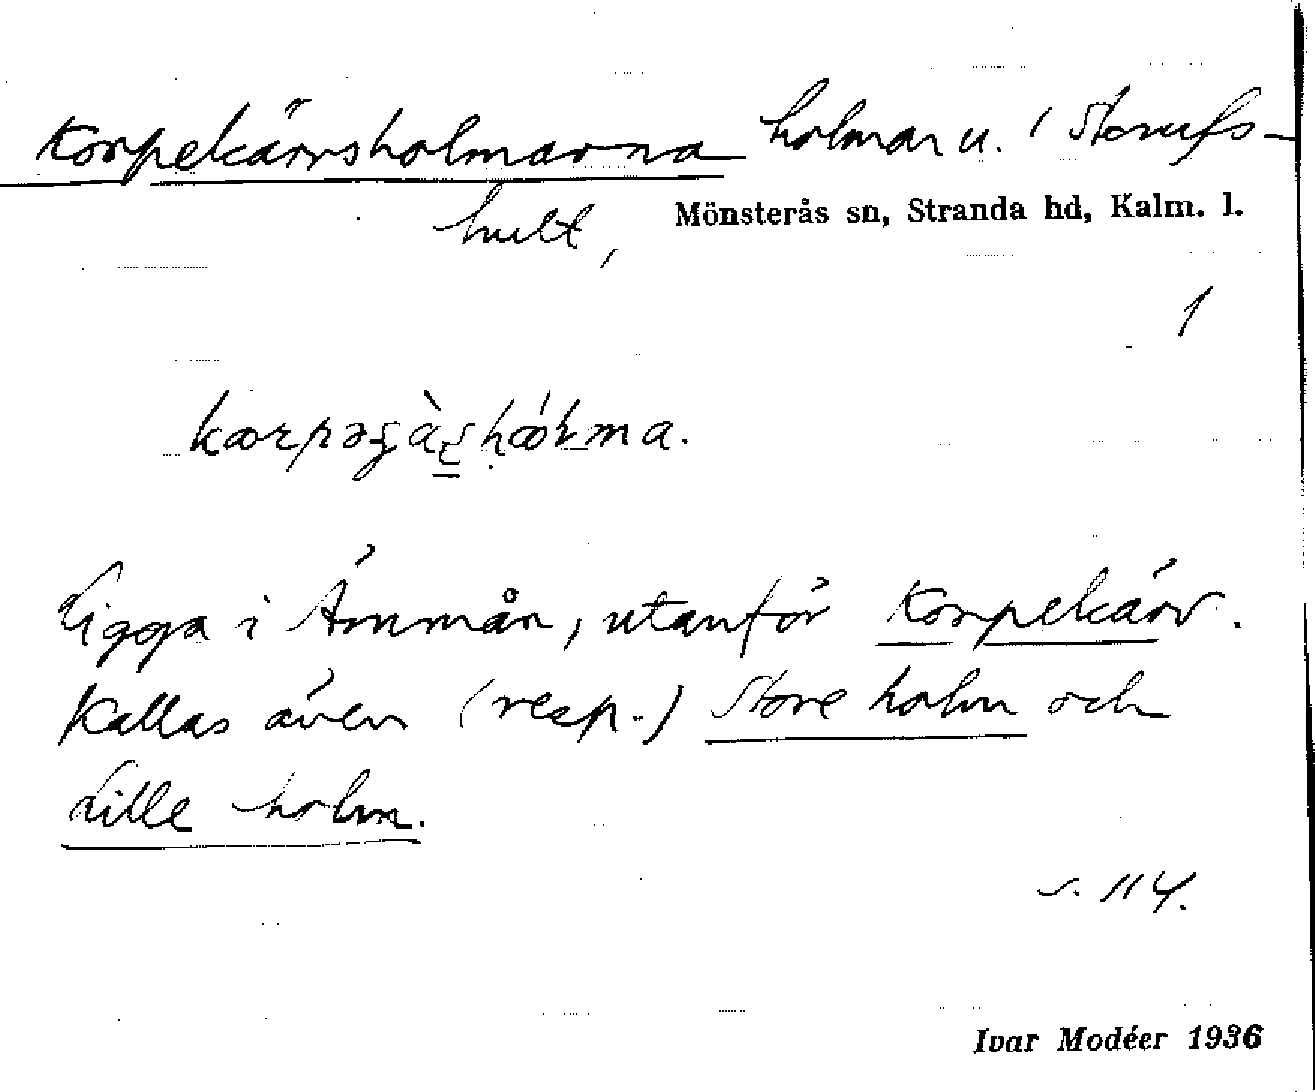 Korpekärrsholmarna holmar u. / Storufs-
hult, Mönsterås sn, Stranda hd, Kalm. l.
1
Ligga i Ämmån, utanför Korpekärr.
Kallas även (resp.) Store holm och
Lille holm.
s. 114.
Ivar Modéer 1936